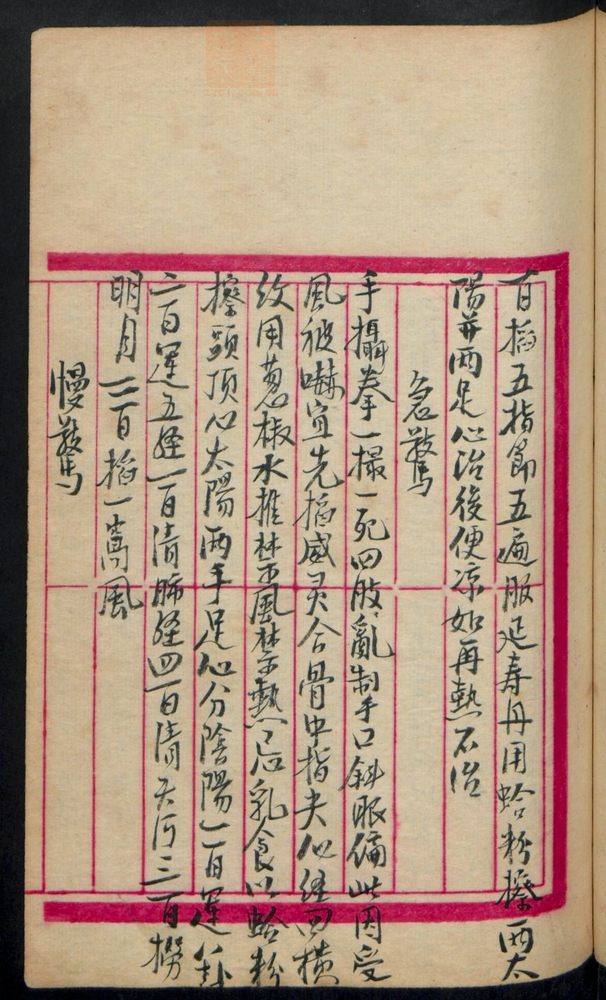 百掐五指節五遍服延壽丹用蛤粉擦兩太
陽并兩足心治後便凉如再熱不治
急驚
手攝拳一撮一死四肢亂制手口斜眼偏此因受
風被嚇宜先掐威灵合骨中指尖心經四橫
紋用葱椒水推禁風禁熱忌乳食以蛤粉
擦頭頂心太陽兩手足心分陰陽一百運卦
二百運五經一百清肺經四百清天河三百撈
明月三百掐一窩風
慢驚